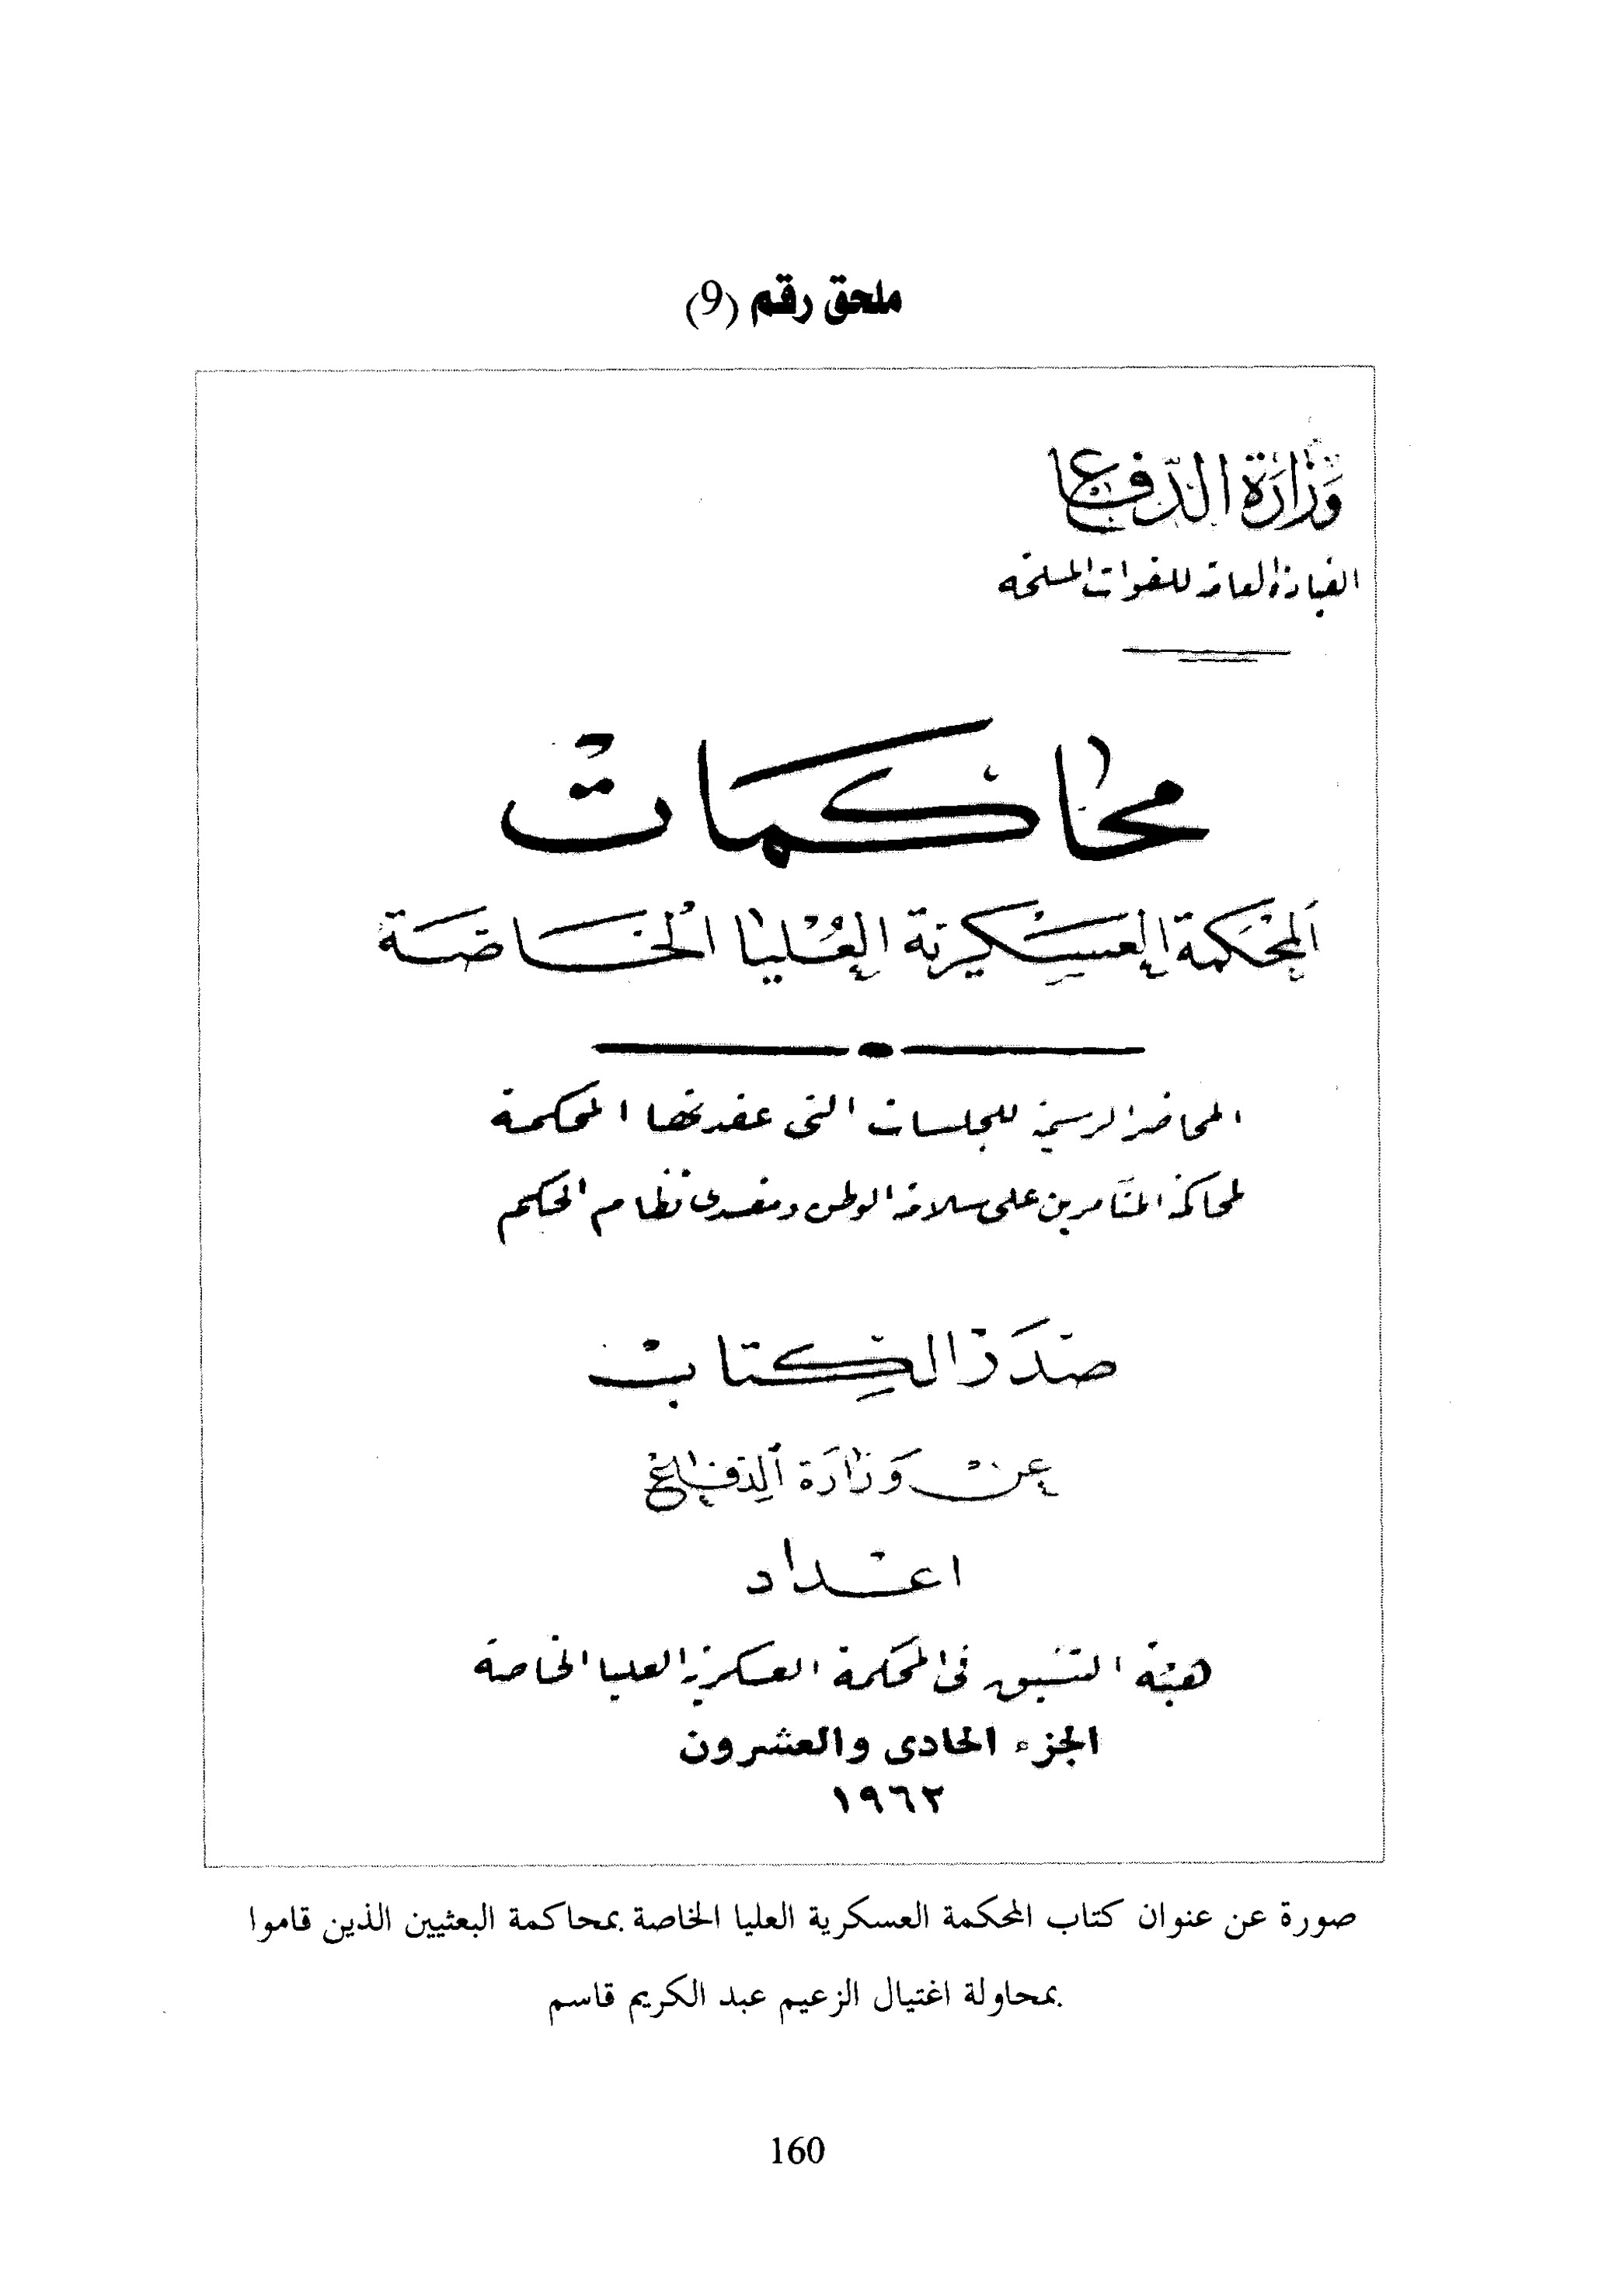 ملحق رقم (9)
وزارة الدفاع
القيادة العامة للقوات المسلحة
محاكمات
المحكمة العسكرية العليا الخاصة
المحاضر الرسمية للجلسات التي عقدتها المحكمة
لمحاكمة المتآمرين على سلامة الوطن ومفسدي نظام الحكم
صدر الكتاب
عن وزارة الدفاع
اعداد
هيئة التنسيق في المحكمة العسكرية العليا الخاصة
الجزء الحادى والعشرون
١٩٦٢
صورة عن عنوان كتاب المحكمة العسكرية العليا الخاصة بمحاكمة البعثيين الذين قاموا
بمحاولة اغتيال الزعيم عبد الكريم قاسم
160